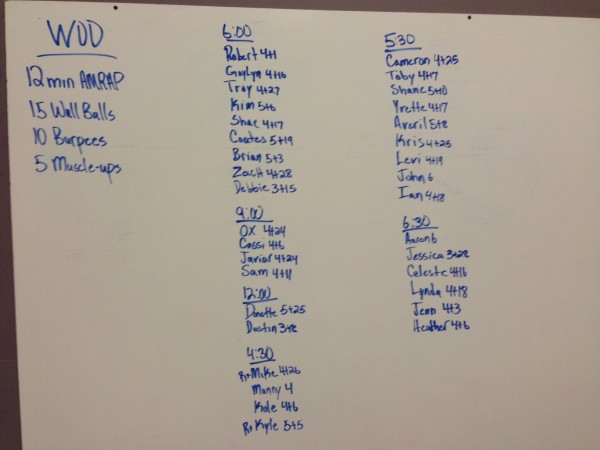 WOD
12 min AMRAP
15 Wall Balls
10 Burpees
5 Muscle-ups
6:00
Robert 4+1
Gaylyn 4+16
Troy 4+27
Kim 5+6
Shae 4+17
Coates 5+19
Brian 5+3
Zach 4+28
Debbie 3+15
9:00
OX 4+24
Cassi 4+6
Javier 4+24
Sam 4+11
12:00
Donette 5+25
Dustin
4:30
Rx Mike 4+26
Manny 4
Kole 4+6
Rx Kyle 3+5
5:30
Cameron 4+25
Toby 4+7
Shane 5+10
Yvette 4+17
Averil 5+8
Kris 4+25
Levi 4+19
John 6
Ian 4+18
6:30
Aaron 6
Jessica 3+28
Celeste 4+16
Lynda 4+18
Jenn 4+3
Heather 4+6